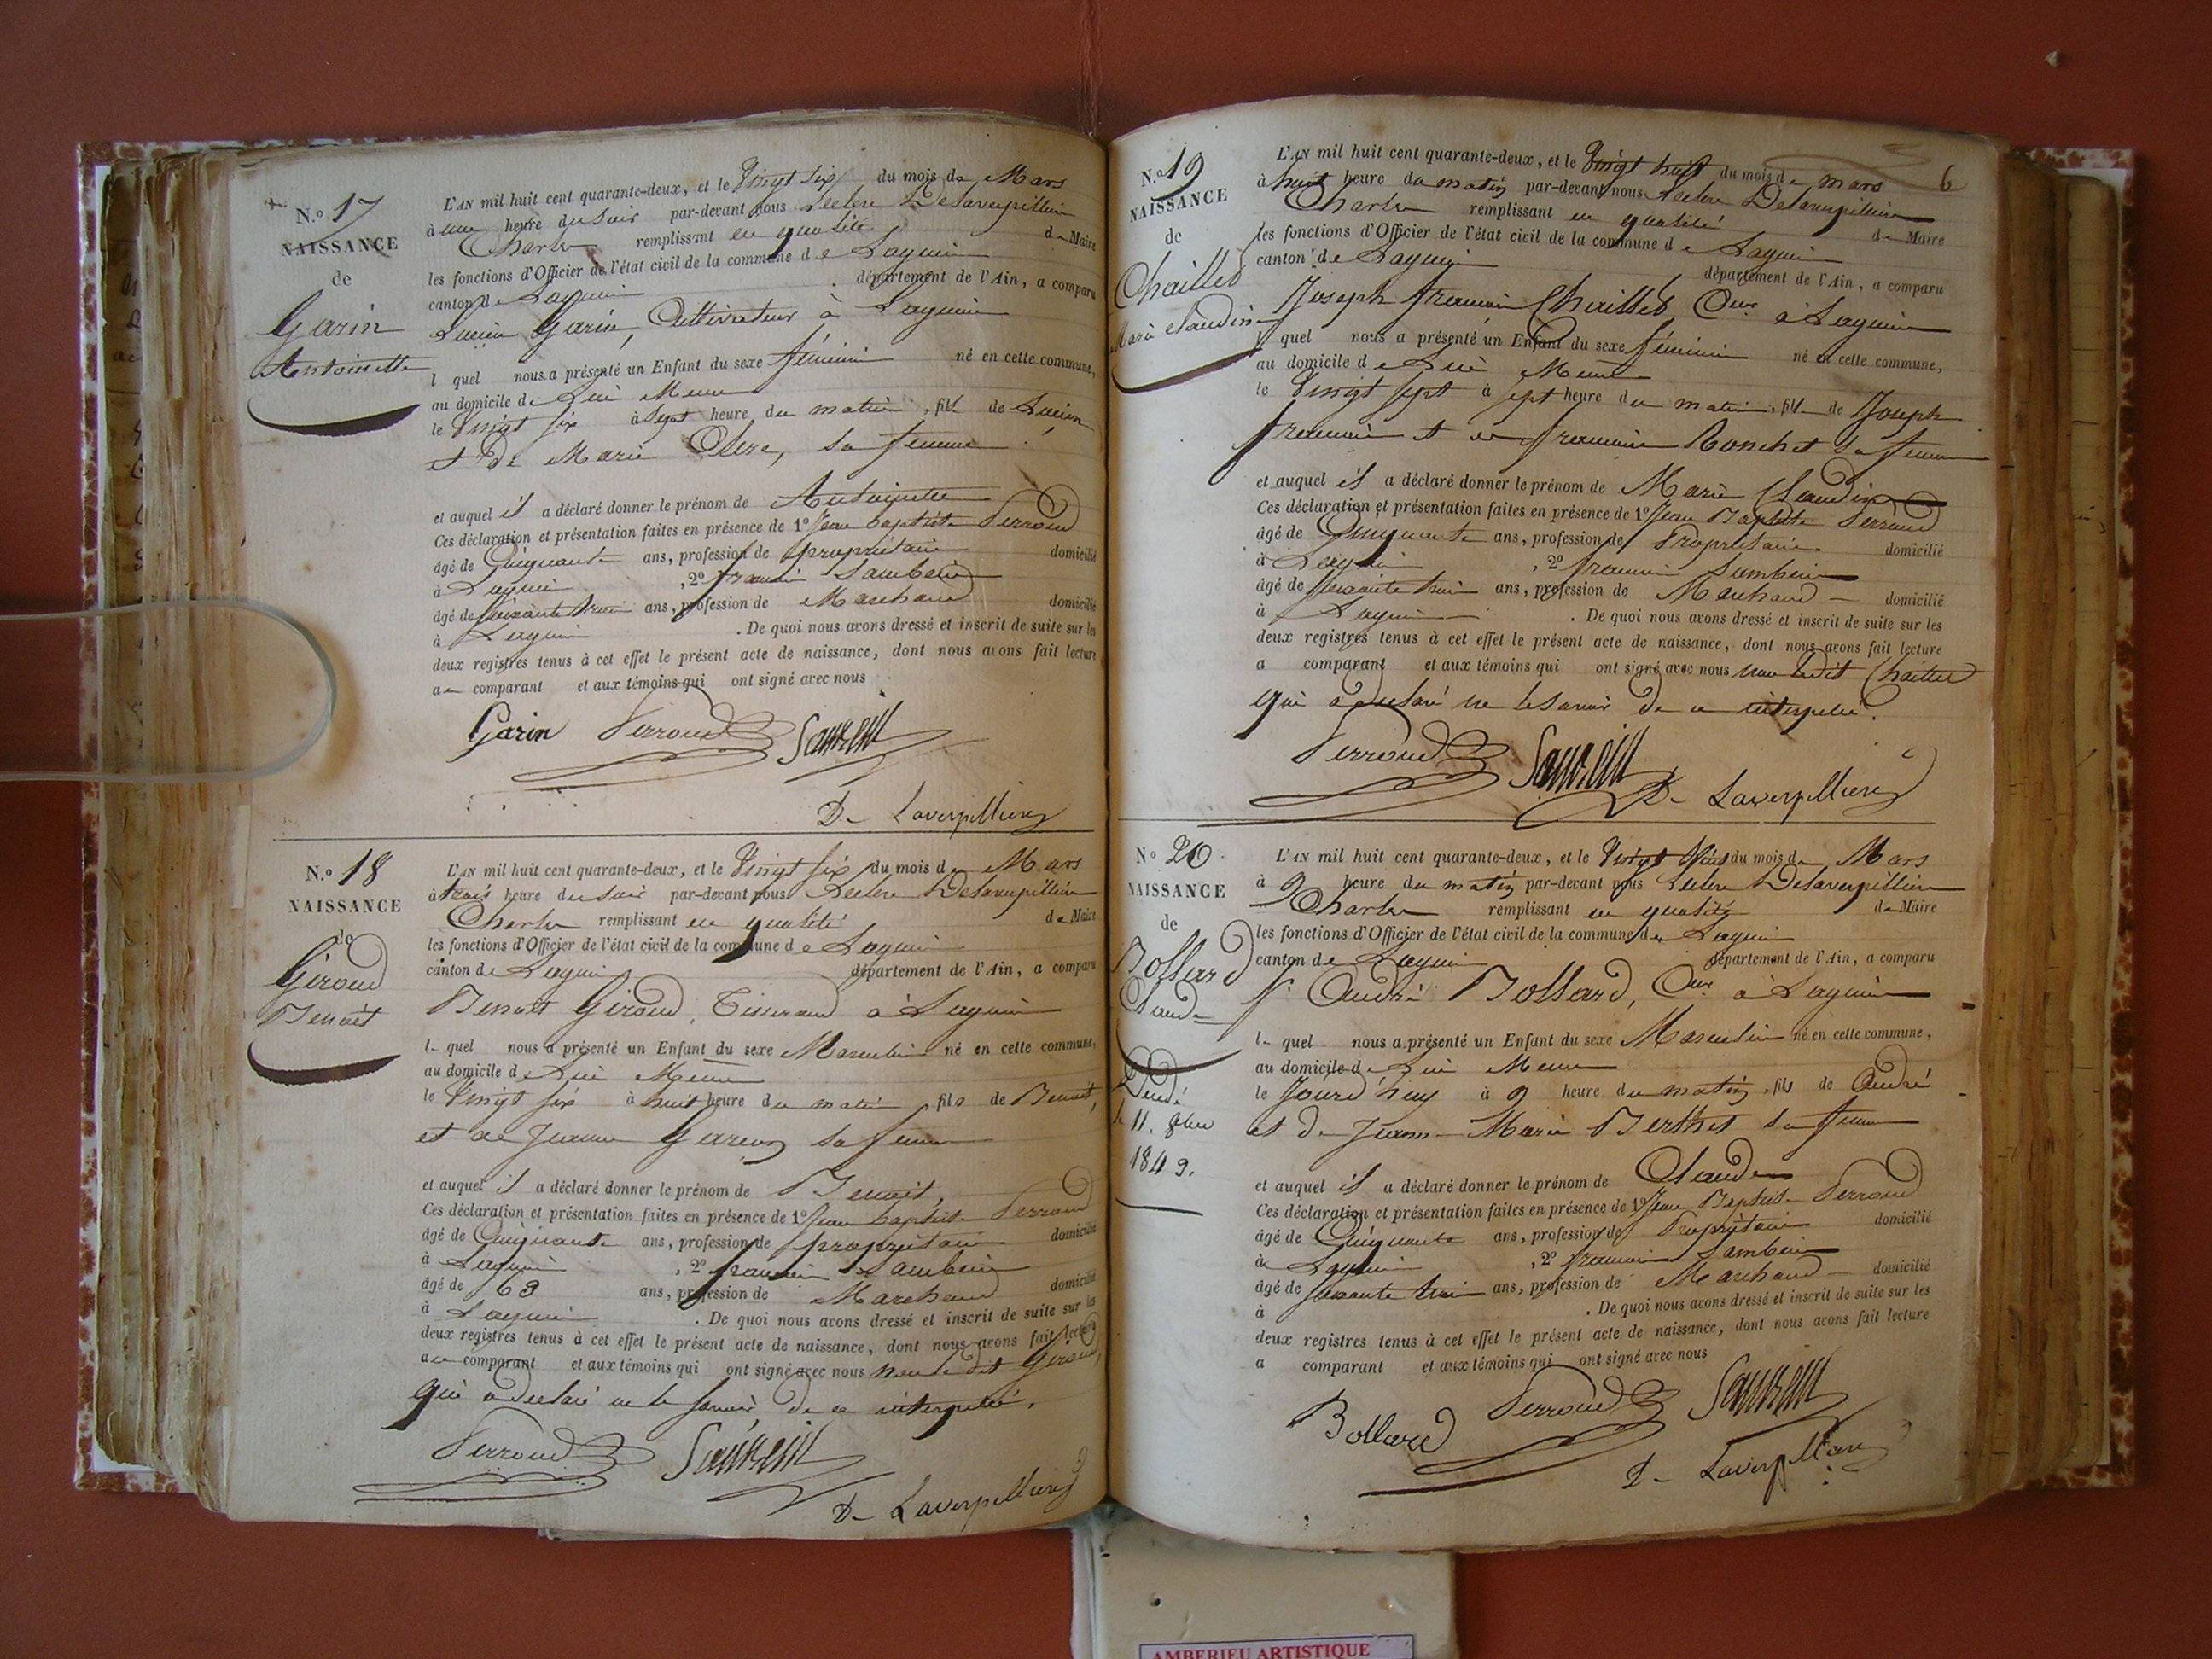 N.o 17
NAISSANCE
de
Garin
Antoinette
L'AN mil huit cent quarante-deux, et le Vingt six du mois de Mars
à une heure du soir par-devant nous Leclerc Delaverpillière
Charles remplissant en qualité de Maire
les fonctions d'Officier de l'état civil de la commune de Lagnieu
canton de Lagnieu département de l'Ain, a comparu
Lucien Garin, Cultivateur à Lagnieu
l quel nous a présenté un Enfant du sexe féminin né en cette commune,
au domicile de Lui Meme
le Vingt six à sept heure du matin, fil de Lucien
et De Marie Clerc, sa femme
et auquel il a déclaré donner le prénom de Antoinette
Ces déclaration et présentation faites en présence de 1o Jean baptiste Perroud
âgé de Cinquante ans, profession de propriétaire domicilié
à Lagnieu, 2o
âgé de soixante trois ans, profession de Marchand domicilié
à Lagnieu. De quoi nous avons dressé et inscrit de suite sur les
deux registres tenus à cet effet le présent acte de naissance, dont nous avons fait lecture
au comparant et aux témoins qui ont signé avec nous
Garin Perroud
De Laverpilliere
N.o 18
NAISSANCE
de
Giroud
Benoit
L'AN mil huit cent quarante-deux, et le Vingt six du mois de Mars
à trois heure du soir par-devant nous Leclerc Delaverpillière
Charles remplissant en qualité de Maire
les fonctions d'Officier de l'état civil de la commune de Lagnieu
canton de Lagnieu département de l'Ain, a comparu
Benoit Giroud, Tisserand à Lagnieu
le quel nous a présenté un Enfant du sexe Masculin né en cette commune,
au domicile de Lui Meme
le Vingt six à huit heure du matin, fils de Benoit,
et de Jeanne sa femme
et auquel il a déclaré donner le prénom de Benoit,
Ces déclaration et présentation faites en présence de 1o Jean baptiste Perroud
âgé de Cinquante ans, profession de propriétaire domicilié
à Lagnieu, 2o
âgé de 63 ans, profession de Marchand domicilié
à Lagnieu. De quoi nous avons dressé et inscrit de suite sur les
deux registres tenus à cet effet le présent acte de naissance, dont nous avons fait lecture
au comparant et aux témoins qui ont signé avec nous non ledit Giroud,
qui a déclaré ne le savoir de ce interpellé.
Perroud
De Laverpilliere
6
N.o 19
NAISSANCE
de
Chaillet
Marie Claudine
L'AN mil huit cent quarante-deux, et le Vingt huit du mois de mars
à huit heure du matin par-devant nous Leclerc Delaverpillière
Charles remplissant en qualité de Maire
les fonctions d'Officier de l'état civil de la commune de Lagnieu
canton de Lagnieu département de l'Ain, a comparu
Joseph Chaillet Cur à Lagnieu
l quel nous a présenté un Enfant du sexe féminin né en cette commune,
au domicile de Lui Meme
le Vingt sept à sept heure du matin, fil de Joseph
et de Ronchet sa femme
et auquel il a déclaré donner le prénom de Marie Claudine
Ces déclaration et présentation faites en présence de 1o Jean Baptiste Perroud
âgé de Cinquante ans, profession de Propriétaire domicilié
à Lagnieu, 2o
âgé de soixante trois ans, profession de Marchand domicilié
à Lagnieu. De quoi nous avons dressé et inscrit de suite sur les
deux registres tenus à cet effet le présent acte de naissance, dont nous avons fait lecture
a comparant et aux témoins qui ont signé avec nous non ledit Chaillet
qui a déclaré ne le savoir de ce interpellé.
Perroud
De Laverpilliere
No 20
NAISSANCE
de
Bollard
Claude
Décédé
le 11. 8bre
1849.
L'AN mil huit cent quarante-deux, et le Vingt huit du mois de Mars
à 9 heure du matin par-devant nous Leclerc Delaverpillière
Charles remplissant en qualité de Maire
les fonctions d'Officier de l'état civil de la commune de Lagnieu
canton de Lagnieu département de l'Ain, a comparu
André Bollard, Cur à Lagnieu
le quel nous a présenté un Enfant du sexe Masculin né en cette commune,
au domicile de Lui Meme
le Jourd'huy à 9 heure du matin, fils de André
et de Jeanne Marie Berthet sa femme
et auquel il a déclaré donner le prénom de Claude
Ces déclaration et présentation faites en présence de 1o Jean Baptiste Perroud
âgé de Cinquante ans, profession de Propriétaire domicilié
à Lagnieu, 2o
âgé de soixante trois ans, profession de Marchand domicilié
à . De quoi nous avons dressé et inscrit de suite sur les
deux registres tenus à cet effet le présent acte de naissance, dont nous avons fait lecture
a comparant et aux témoins qui ont signé avec nous
Bollard Perroud
De Laverpilliere
AMBERIEU ARTISTIQUE